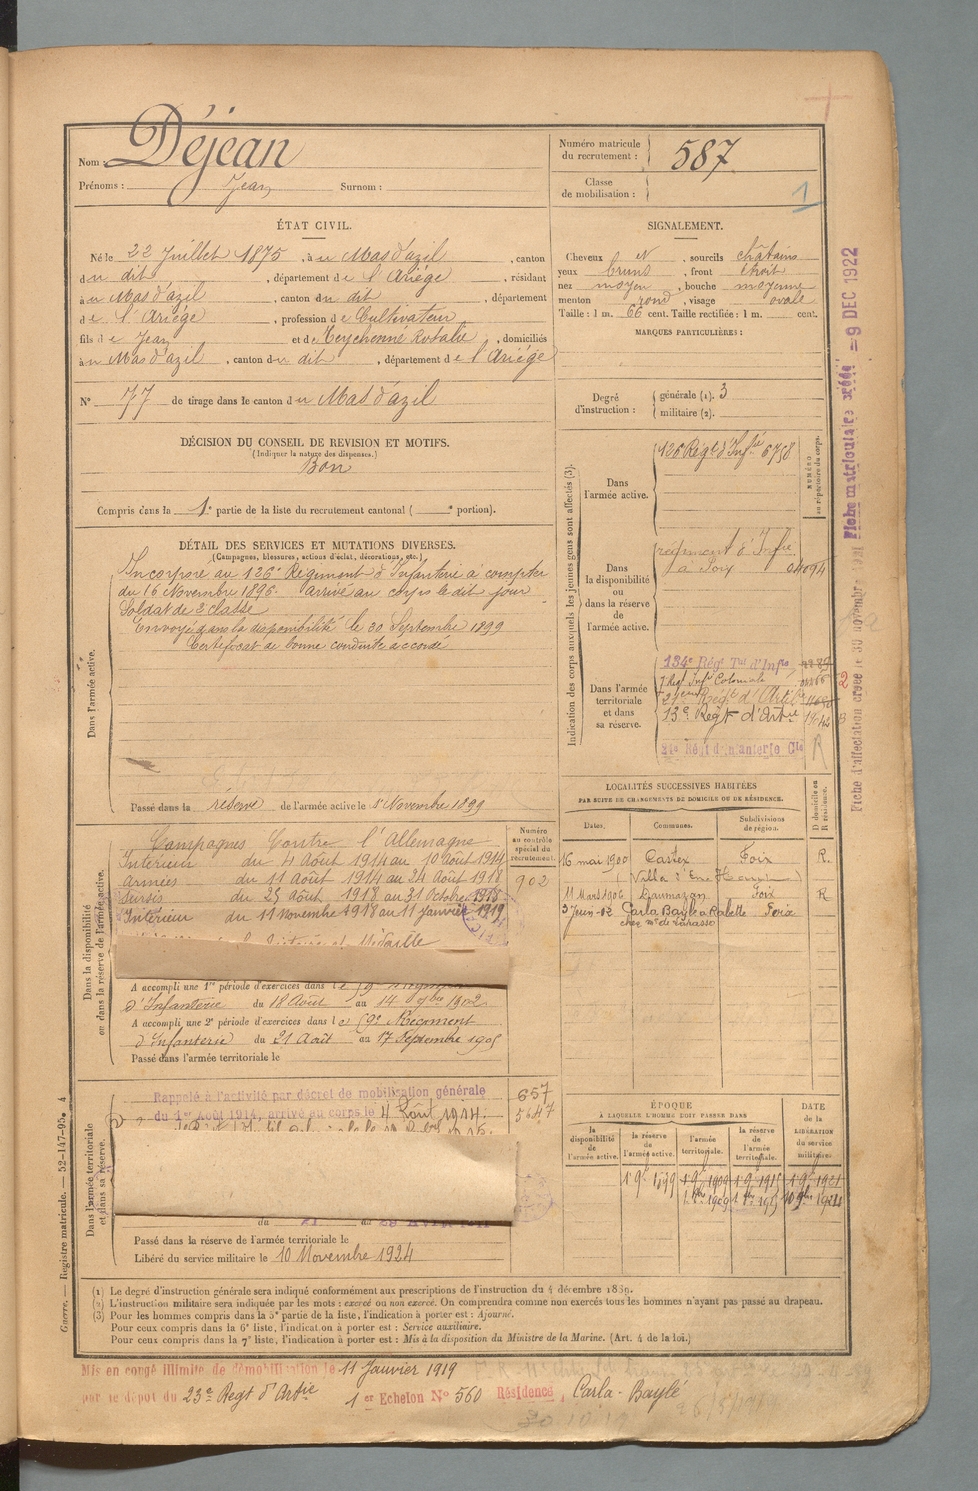 Nom : Déjean
Prénoms : Jean Surnom :
Numéro matricule du recrutement : 587
Classe de mobilisation :
1
ÉTAT CIVIL.
Né le 22 Juillet 1875, à u Mas d'azil, canton
d u dit, département d e l'Ariège, résidant
à u Mas d'azil, canton d u dit, département
d e l'Ariège, profession d e Cultivateur
fils d e Jean et d e Teychenne Rosalie, domiciliés
à u Mas d'azil, canton d u dit, département d e l'Ariège
N° 77 de tirage dans le canton d u Mas d'azil
SIGNALEMENT.
Cheveux et, sourcils châtains
yeux bruns, front étroit
nez moyen, bouche moyenne
menton rond, visage ovale
Taille : 1 m. 66 cent. Taille rectifiée : 1 m. cent.
MARQUES PARTICULIÈRES :
Degré d'instruction : générale (1). 3
militaire (2).
DÉCISION DU CONSEIL DE REVISION ET MOTIFS.
(Indiquer la nature des dispenses.)
Bon
Compris dans la 1e partie de la liste du recrutement cantonal ( e portion).
DÉTAIL DES SERVICES ET MUTATIONS DIVERSES.
(Campagnes, blessures, actions d'éclat, décorations, etc.)
Dans l'armée active.
Incorporé au 126e Régiment d'Infanterie à compter
du 16 Novembre 1896. arrivé au corps le dit jour
Soldat de 2e classe
Envoyé dans la disponibilité le 30 Septembre 1899
Certificat de bonne conduite accordé
Passé dans la réserve de l'armée active le 1er Novembre 1899
Indication des corps auxquels les jeunes gens sont affectés (3).
NUMÉRO au répertoire du corps.
Dans l'armée active.
126 Régt d'Infie 6758
Dans la disponibilité ou dans la réserve de l'armée active.
régiment d'Infie
à Foix 04094
Dans l'armée territoriale et dans sa réserve.
134e Régt Tal d'Infie
7 Régt Infie Coloniale
21ème Régt d'Artie
13e Régt d'Artie
24e Régt d'Infanterie Cle
R
Dans la disponibilité ou dans la réserve de l'armée active.
Numéro au contrôle spécial du recrutement.
902
Campagnes Contre l'Allemagne
Intérieur du 4 Août 1914 au 10 août 1914
armées du 11 Août 1914 au 24 Août 1918
sursis du 25 Août 1918 au 31 Octobre 1918
Intérieur du 11 Novembre 1918 au 11 Janvier 1919
A accompli une 1re période d'exercices dans le
d'Infanterie du 18 Août au 14 7bre 1902
A accompli une 2e période d'exercices dans l e 59e Régiment
d'Infanterie du 21 Août au 17 Septembre 1905
Passé dans l'armée territoriale le
LOCALITÉS SUCCESSIVES HABITÉES
PAR SUITE DE CHANGEMENTS DE DOMICILE OU DE RÉSIDENCE.
Dates. Communes. Subdivisions de région. D domicile ou R résidence.
16 mai 1900 Castex Foix R.
11 Mars 1906 Daumazan Foix R
Carla Bayle Foix
Dans l'armée territoriale et dans sa réserve.
Rappelé à l'activité par décret de mobilisation générale
du 1er Août 1914, arrivé au corps le 4 Août 1914.
657
5647
Passé dans la réserve de l'armée territoriale le
Libéré du service militaire le 10 Novembre 1924
ÉPOQUE
À LAQUELLE L'HOMME DOIT PASSER DANS
DATE de la LIBÉRATION du service militaire.
la disponibilité de l'armée active. la réserve de l'armée active. l'armée territoriale. la réserve de l'armée territoriale.
1 9bre 1899 1 9bre 1909 1 9bre 1915 1 9bre 1921
(1) Le degré d'instruction générale sera indiqué conformément aux prescriptions de l'instruction du 4 décembre 1889.
(2) L'instruction militaire sera indiquée par les mots : exercé ou non exercé. On comprendra comme non exercés tous les hommes n'ayant pas passé au drapeau.
(3) Pour les hommes compris dans la 5e partie de la liste, l'indication à porter est : Ajourné.
Pour ceux compris dans la 6e liste, l'indication à porter est : Service auxiliaire.
Pour ceux compris dans la 7e liste, l'indication à porter est : Mis à la disposition du Ministre de la Marine. (Art. 4 de la loi.)
Guerre. — Registre matricule. — 52-147-95. 4
Mis en congé illimité de démobilisation le 11 Janvier 1919
par le dépôt du 23e Régt d'Artie 1er Echelon N° 560 Résidence, Carla-Baylé
Fiche d'affectation créée le 30 novembre 1921 Fiche matriculaire créée = 9 DEC 1922